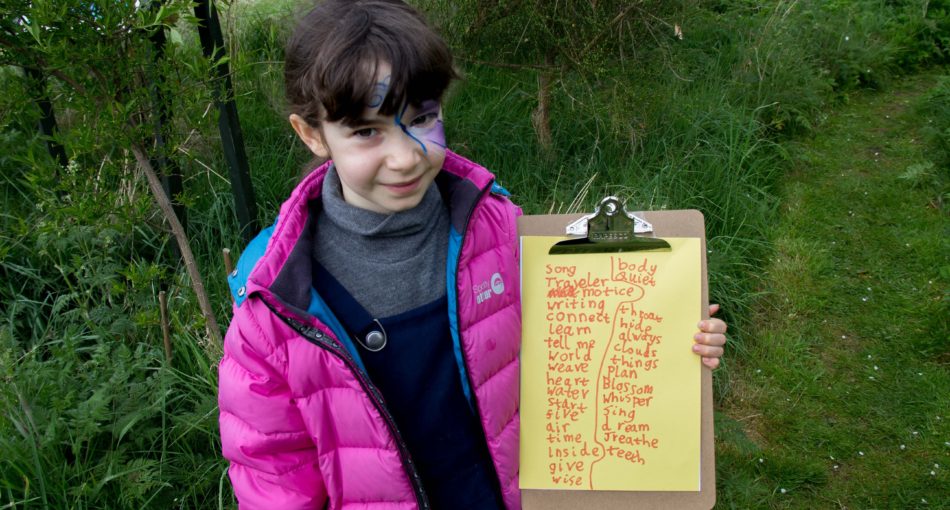 song
Traveler
motice
writing
connect
learn
tell me
world
weave
heart
water
start
five
air
time
Inside
give
wise
body
Quiet
throat
hide
always
clouds
things
plan
Blossom
whisper
sing
dream
Jreathe
teeth